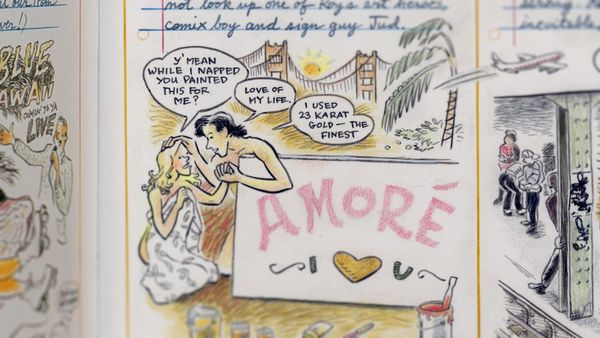 not look up one of Roy's art heroes,
comix boy and sign guy Jud.
Y'MEAN
WHILE I NAPPED
YOU PAINTED
THIS FOR
ME?
LOVE OF
MY LIFE.
I USED
23 KARAT
GOLD — THE
FINEST
AMORÉ
I U
BLUE
LIVE